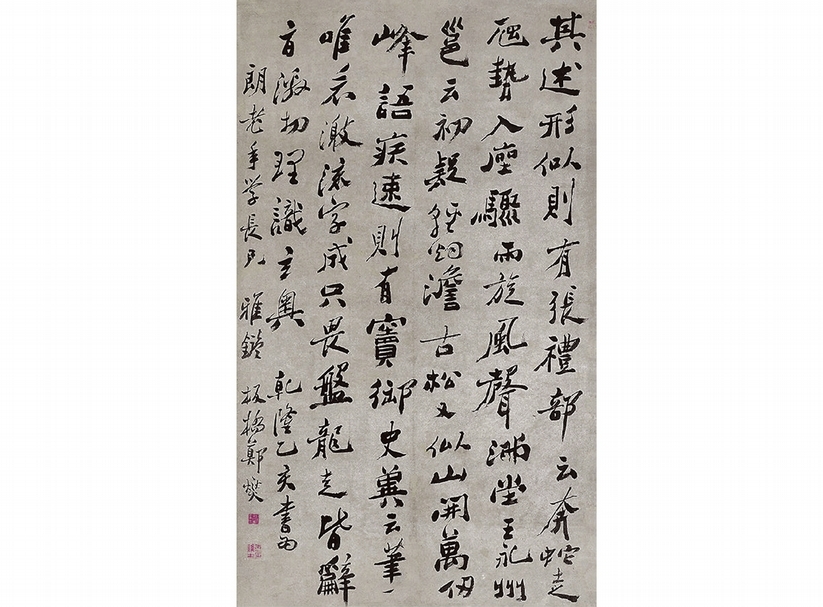 其述形似則有張禮部云奔蛇走
虺勢入座驟雨旋風聲滿堂王永州
邕云初疑輕煙澹古松又似山開萬仞
峰語疾速則有竇御史冀云筆下
唯看激流字成只畏盤龍走皆辭
旨激切理識玄奧 乾隆乙亥書為
朗老年學長兄 雅鑒 板橋鄭燮